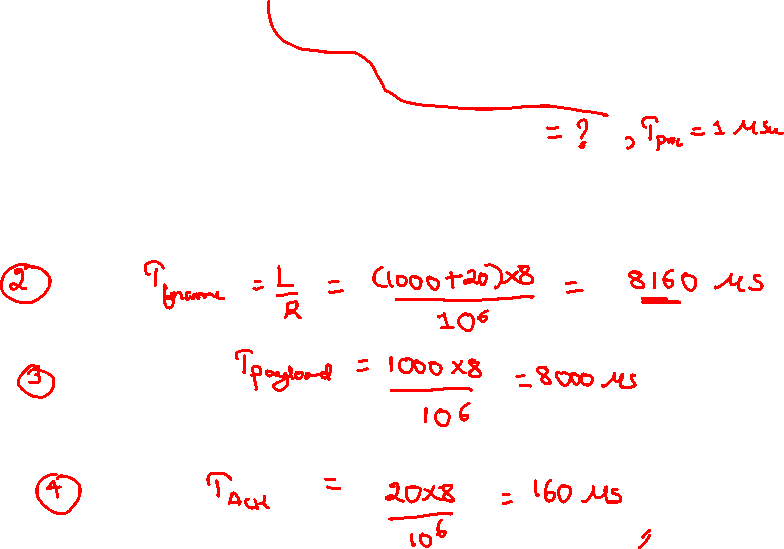 = ? , Tproc = 1 μsec
② Tframe = L/R = (1000+20)×8 / 10⁶ = 8160 μs
③ Tpayload = 1000×8 / 10⁶ = 8000 μs
④ TAck = 20×8 / 10⁶ = 160 μs ,